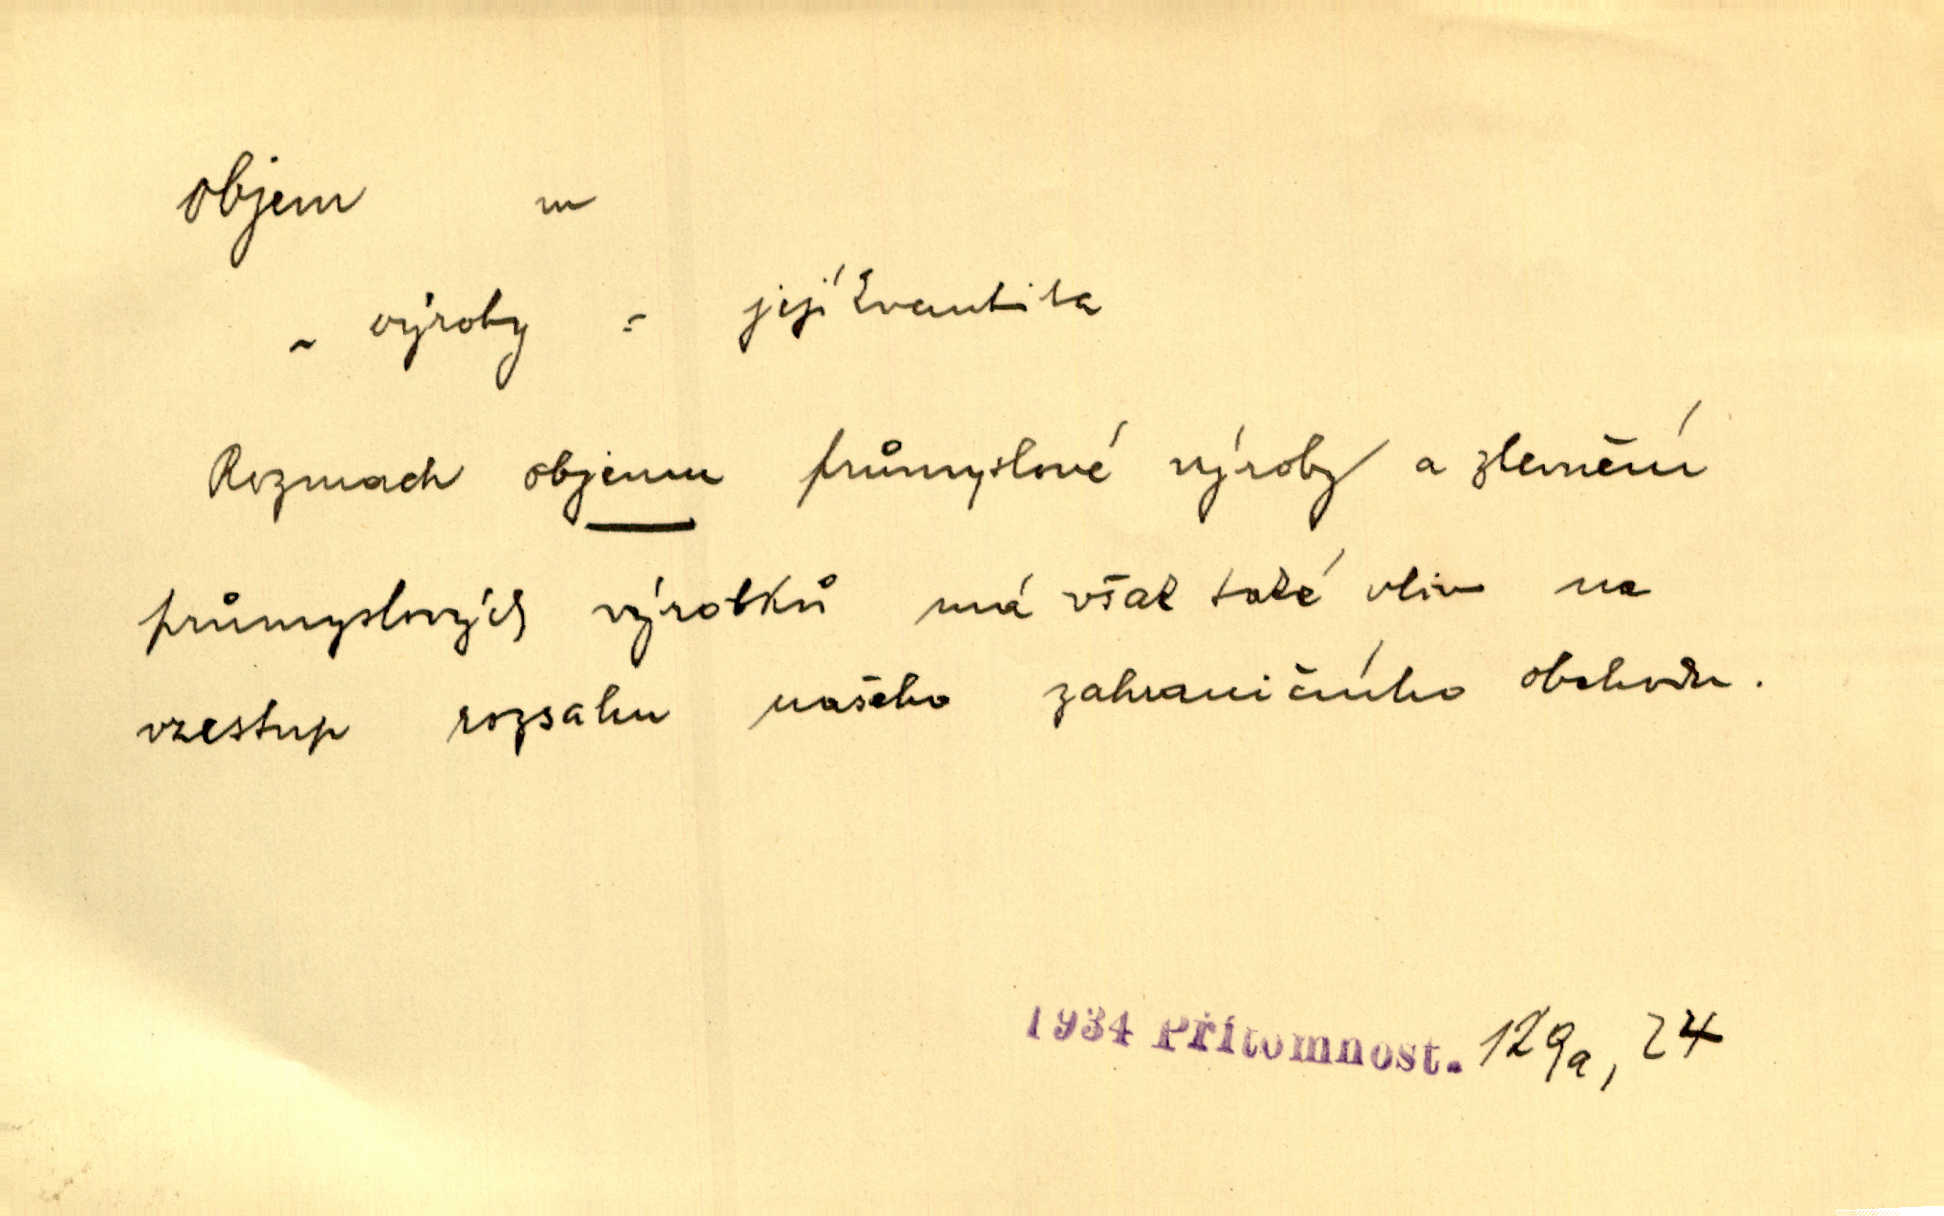 objem m
~ výroby = její kvantita
Rozmach objemu průmyslové výroby a zlevnění
průmyslových výrobků má však také vliv na
vzestup rozsahu našeho zahraničního obchodu.
1934 Přítomnost. 129a, 24